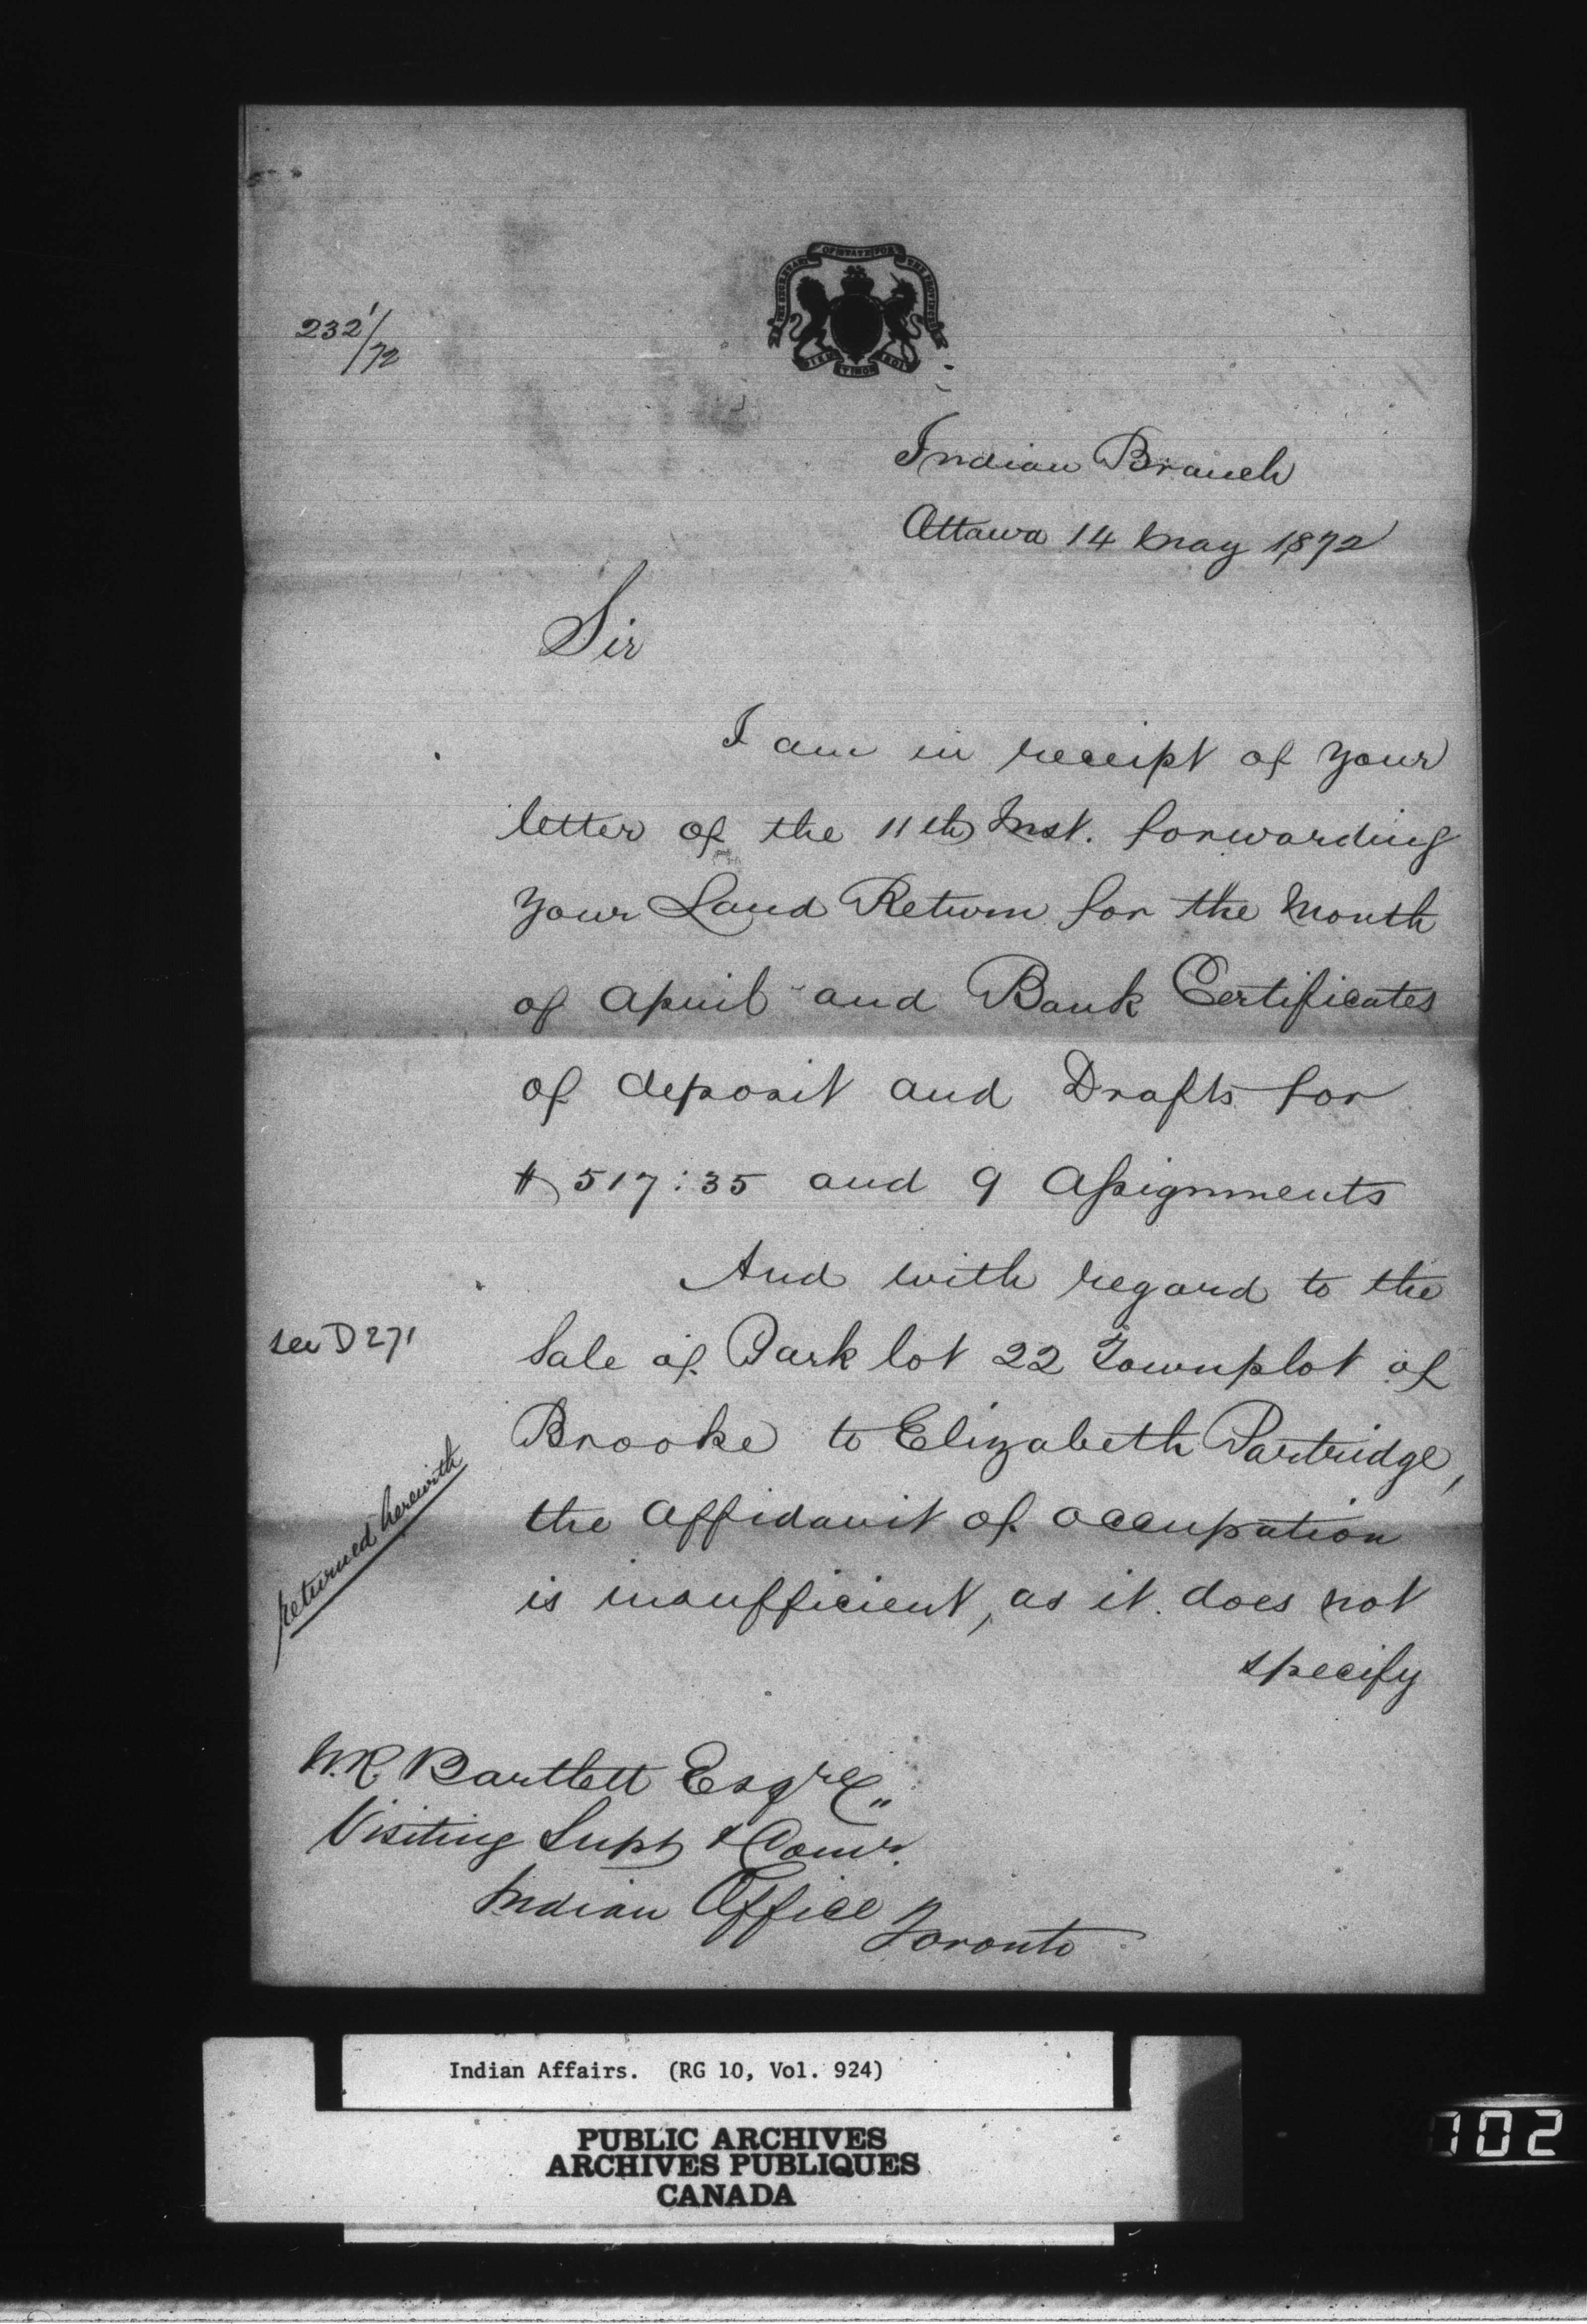 OF STATE FOR
THE SECRETARY
THE PROVINCES
DIEU
ET MON
DROIT
232 1/72
Indian Branch
Ottawa 14 May 1872
Sir
I am in receipt of your
letter of the 11th Inst. forwarding
your Land Return for the Month
of April and Bank Certificates
of deposit and Drafts for
$517:35 and 9 Assignments
And with regard to the
see D 271
Sale of Park lot 22 Townplot of
Brooke to Elizabeth Partridge,
returned herewith
the Affidavit of occupation
is insufficient, as it does not
specify
W.R. Bartlett Esqre
Visiting Supt & Comr.
Indian Office
Toronto
Indian Affairs. (RG 10, Vol. 924)
PUBLIC ARCHIVES
ARCHIVES PUBLIQUES
CANADA
702